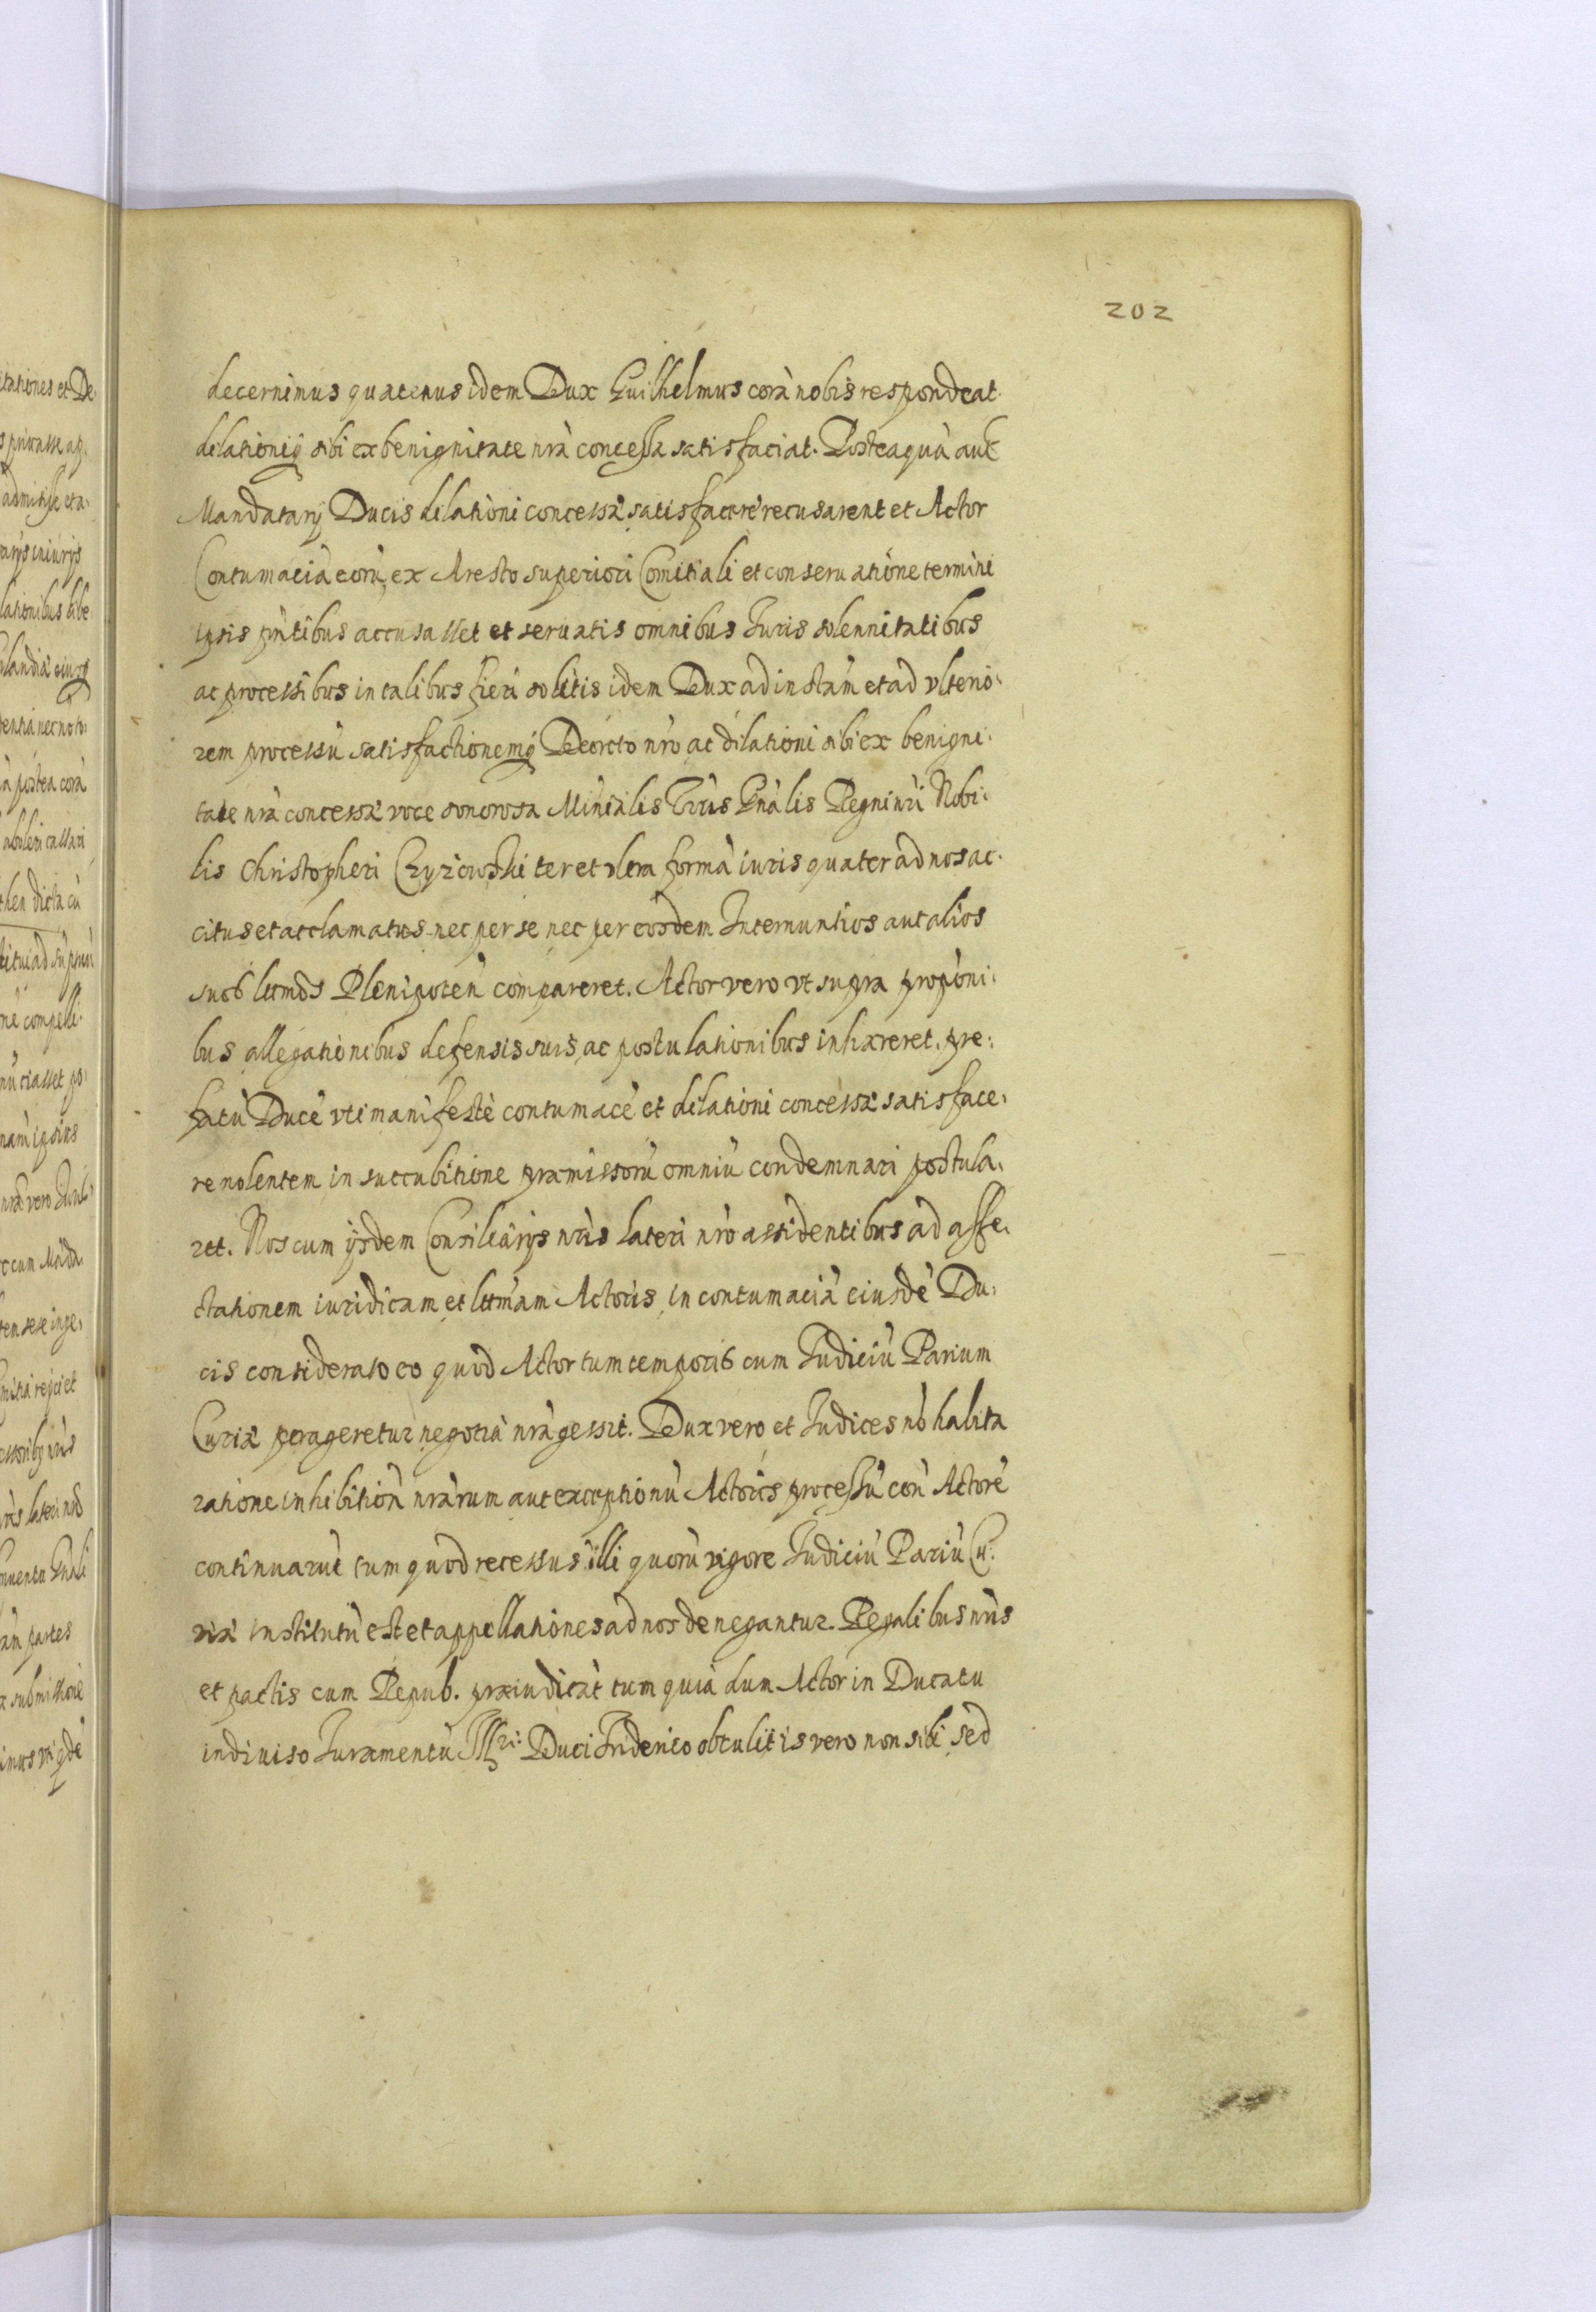 202
decernimus quatenus idem Dux Guilhelmus corà nobis respondeat
dilationiq́ sibi ex benignitate nrà concessa satisfaciat. Posteaquà aut
Mandatarij Ducis dilationi concessæ satisfacere recusarent et Actor
Contumacià eorù, ex Aresto superiori Comitiali et conseruatione termini
ipsis pñtibus accusasset et seruatis omnibus Iuris solennitatibus
ac processibus in talibus fieri solitis idem Dux ad instam̃ et ad vlterio:
rem processù satisfactionemq́ Decreto nr̃o ac dilationi sibi ex benigni:
tate nr̃a concessæ voce sonorosa Minĩalis Iuris Gñalis Regni nr̃i Nobi:
lis Christopheri Czyzowski ter et vltra formà iuris quater ad nos ac:
citus et acclamatus nec per se nec per eosdem Internuntios aut alios
suos ltm̃os Plenipoteñ compareret. Actor vero vt supra proponi:
bus allegationibus defensis suis, ac postulationibus inhæreret. pre:
fatù Ducè vti manifestè contumacè et dilationi concessæ satisface:
re nolentem in succubitione præmissorù omniù condemnari postula:
ret. Nos cum ijsdem Consiliarijs nr̃is lateri nr̃o assidentibus ad affe:
ctationem iuridicam et ltm̃am Actoris in contumacià eiusdè Du:
cis considerato eo quod Actor tum temporis cum Iudiciù Parium
Curiæ perageretur negotia nr̃a gessit. Dux vero et Iudices nò habita
ratione inhibitioñ nr̃arum aut exceptionù Actoris processù coñ Actorè
continuarùt tum quod recessus illi quorù vigore Iudiciù Pariù Cu:
riæ institutù est et appellationes ad nos denegantur. Regalibus nr̃is
et pactis cum Repub. præiudicàt tum quià dum Actor in Ducatu
indiuiso Iuramentù Illri: Duci Friderico obtulit is vero non sibi sed